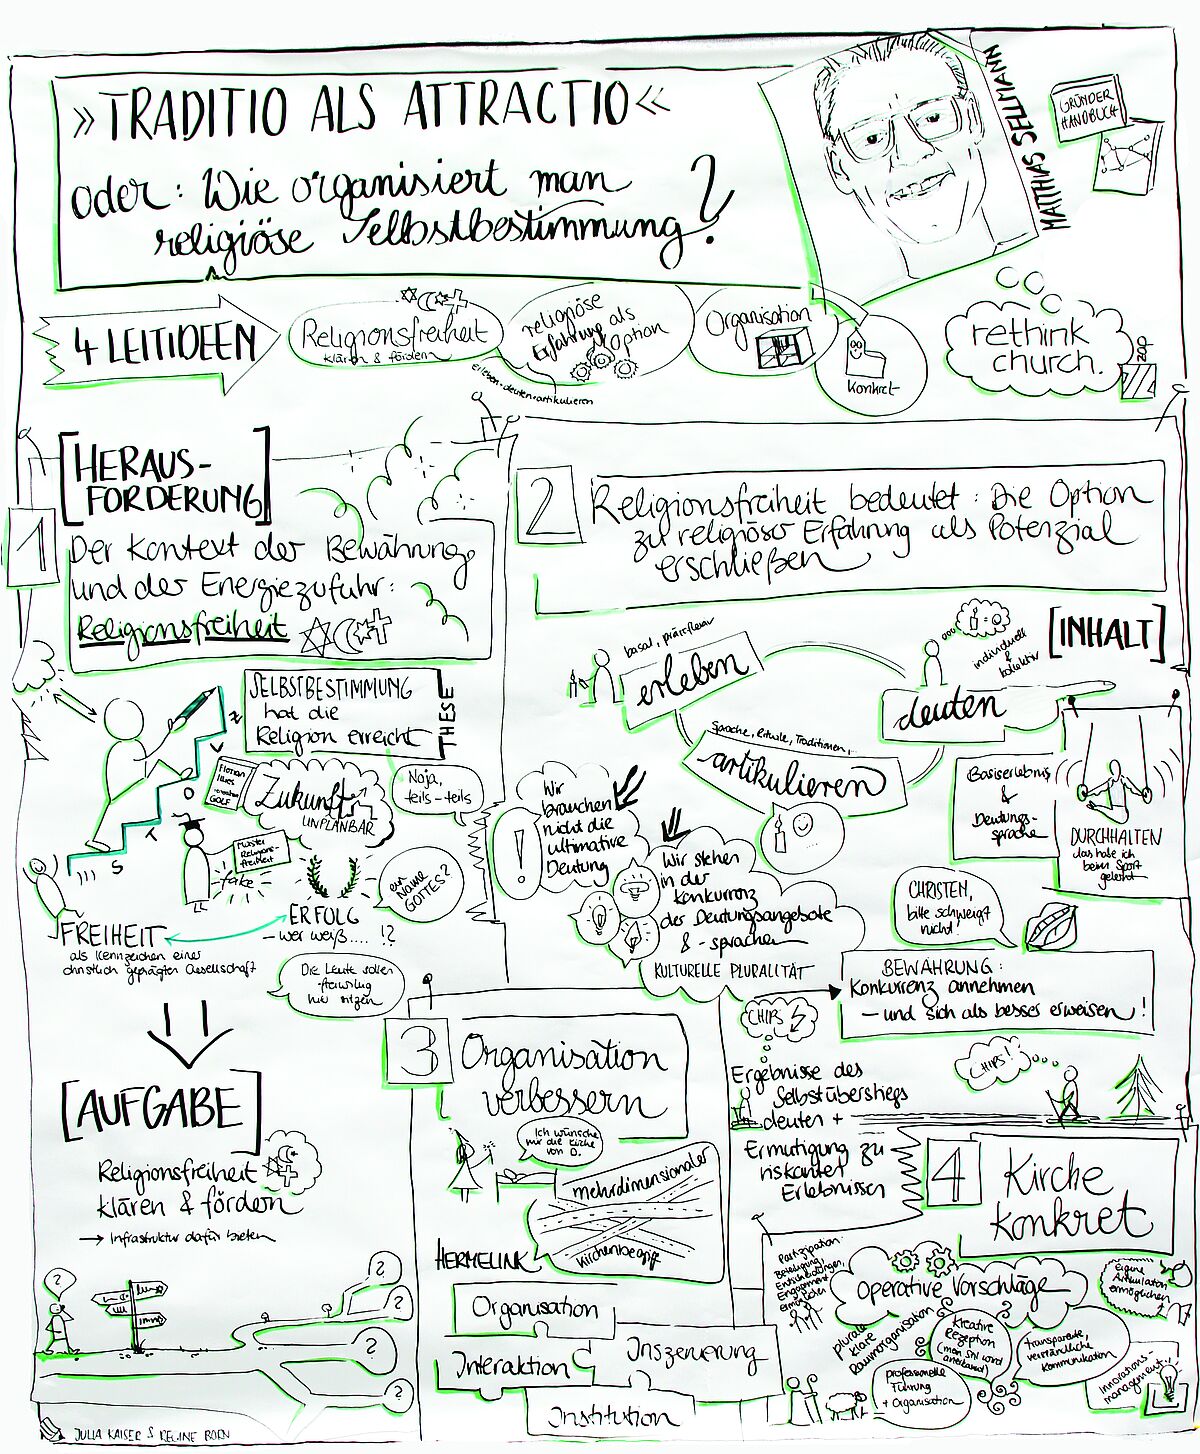 »TRADITIO ALS ATTRACTIO«
oder: Wie organisiert man
religiöse Selbstbestimmung?
MATTHIAS SELLMANN
GRÜNDER
HANDBUCH
4 LEITIDEEN
Religionsfreiheit
klären & fördern
religiöse
Erfahrung als
Option
Erleben-deuten-artikulieren
Organisation
Konkret
rethink
church.
zap
1
[HERAUS-
FORDERUNG]
Der Kontext der Bewährung
und der Energiezufuhr:
Religionsfreiheit
SELBSTBESTIMMUNG
hat die
Religion erreicht
THESE
Florian
GOLF
Zukunft
UNPLANBAR
Naja,
teils-teils
Muster
Religions-
freiheit
fake
ein
Name
GOTTES?
ERFOLG
- wer weiß.... !?
FREIHEIT
als Kennzeichen einer
christlich geprägten Gesellschaft
Die Leute sollen
freiwillig
hier sitzen
[AUFGABE]
Religionsfreiheit
klären & fördern
→ Infrastruktur dafür bieten
?
?
?
?
?
JULIA KAISER &
2
Religionsfreiheit bedeutet: Die Option
zu religiöser Erfahrung als Potenzial
erschließen
[INHALT]
basal, präreflexiv
erleben
individuell
& kollektiv
deuten
Sprache, Rituale, Traditionen,...
artikulieren
Basiserlebnis
&
Deutungs-
sprache
DURCHHALTEN
das habe ich
beim Sport
gelernt
!
Wir
brauchen
nicht die
ultimative
Deutung
Wir stehen
in der
Konkurrenz
der Deutungsangebote
& -sprachen
KULTURELLE PLURALITÄT
CHRISTEN,
bitte schweigt
nicht!
BEWÄHRUNG:
Konkurrenz annehmen
- und sich als besser erweisen!
CHIPS
CHIPS!
Ergebnisse des
Selbstüberstiegs
deuten +
Ermutigung zu
riskanten
Erlebnissen
3
Organisation
verbessern
Ich wünsche
mir die Kirche
von O.
mehrdimensionaler
Kirchenbegriff
HERMELINK
Organisation
Interaktion
Inszenierung
Institution
4
Kirche
konkret
Partizipation:
Beteiligung,
Entscheidungen,
Engagement
ermöglichen
Operative Vorschläge
Eigene
Artikulation
ermöglichen
plurale
klare
Raumorganisation
Kreative
Rezeption
(man wird
anerkannt)
transparente,
verständliche
Kommunikation
professionelle
Führung
+ Organisation
Innovations-
management